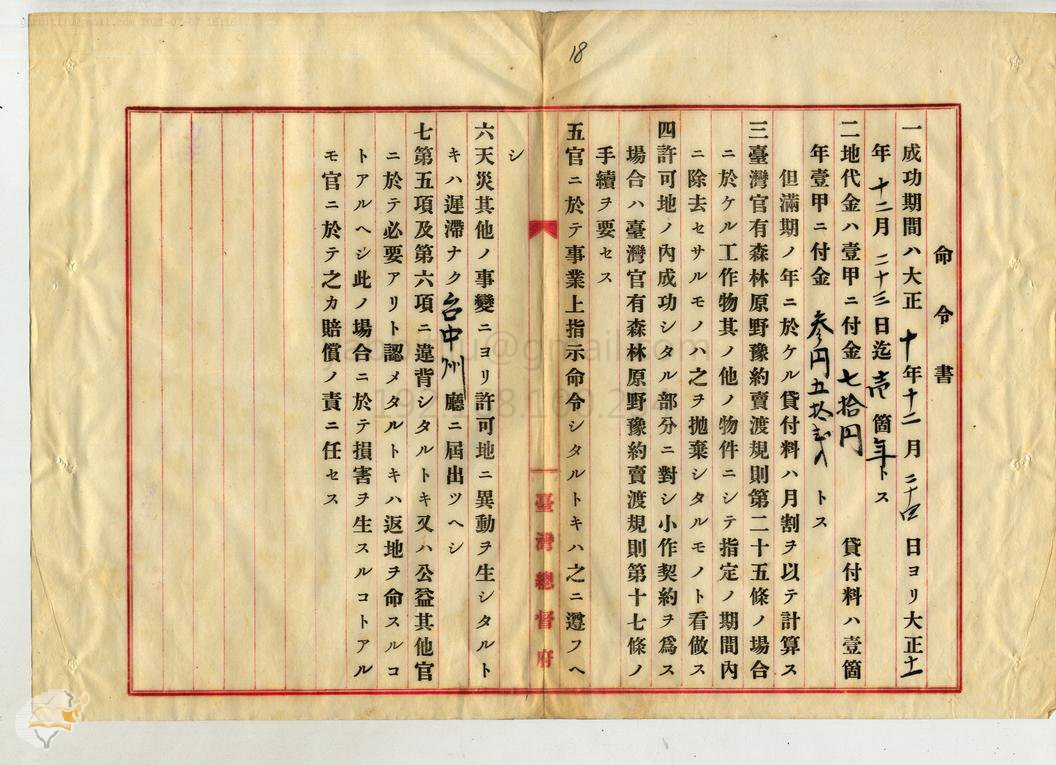 gabbitliu@gmail.com 2021-07-07 16:16
18
命令書
一成功期間ハ大正十年十二月二十四日ヨリ大正十一
年十二月二十三日迄壱箇年トス
二地代金ハ壹甲ニ付金七拾円　貸付料ハ壹箇
年壹甲ニ付金参円五拾銭トス
但滿期ノ年ニ於ケル貸付料ハ月割ヲ以テ計算ス
三臺灣官有森林原野豫約賣渡規則第二十五條ノ場合
ニ於ケル工作物其ノ他ノ物件ニシテ指定ノ期間內
ニ除去セサルモノハ之ヲ拋棄シタルモノト看做ス
四許可地ノ內成功シタル部分ニ對シ小作契約ヲ爲ス
場合ハ臺灣官有森林原野豫約賣渡規則第十七條ノ
手續ヲ要セス
五官ニ於テ事業上指示命令シタルトキハ之ニ遵フヘ
シ
臺灣總督府
六天災其他ノ事變ニヨリ許可地ニ異動ヲ生シタルト
キハ遲滯ナク台中州廳ニ屆出ツヘシ
七第五項及第六項ニ違背シタルトキ又ハ公益其他官
ニ於テ必要アリト認メタルトキハ返地ヲ命スルコ
トアルヘシ此ノ場合ニ於テ損害ヲ生スルコトアル
モ官ニ於テ之カ賠償ノ責ニ任セス